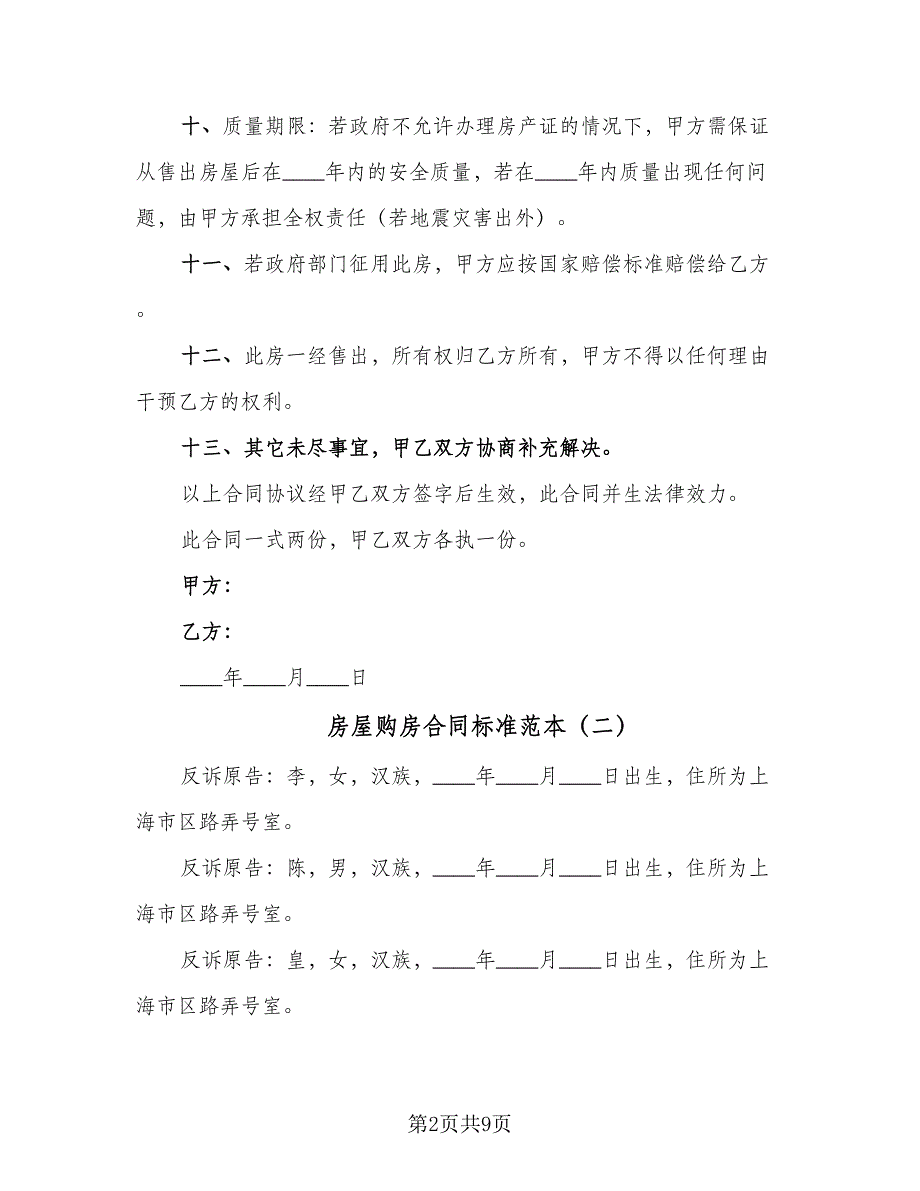 十、质量期限：若政府不允许办理房产证的情况下，甲方需保证
从售出房屋后在____年内的安全质量，若在____年内质量出现任何问
题，由甲方承担全权责任（若地震灾害出外）。
十一、若政府部门征用此房，甲方应按国家赔偿标准赔偿给乙方
。
十二、此房一经售出，所有权归乙方所有，甲方不得以任何理由
干预乙方的权利。
十三、其它未尽事宜，甲乙双方协商补充解决。
以上合同协议经甲乙双方签字后生效，此合同并生法律效力。
此合同一式两份，甲乙双方各执一份。
甲方：
乙方：
____年____月____日
房屋购房合同标准范本（二）
反诉原告：李，女，汉族，____年____月____日出生，住所为上
海市区路弄号室。
反诉原告：陈，男，汉族，____年____月____日出生，住所为上
海市区路弄号室。
反诉原告：皇，女，汉族，____年____月____日出生，住所为上
海市区路弄号室。
第2页共9页